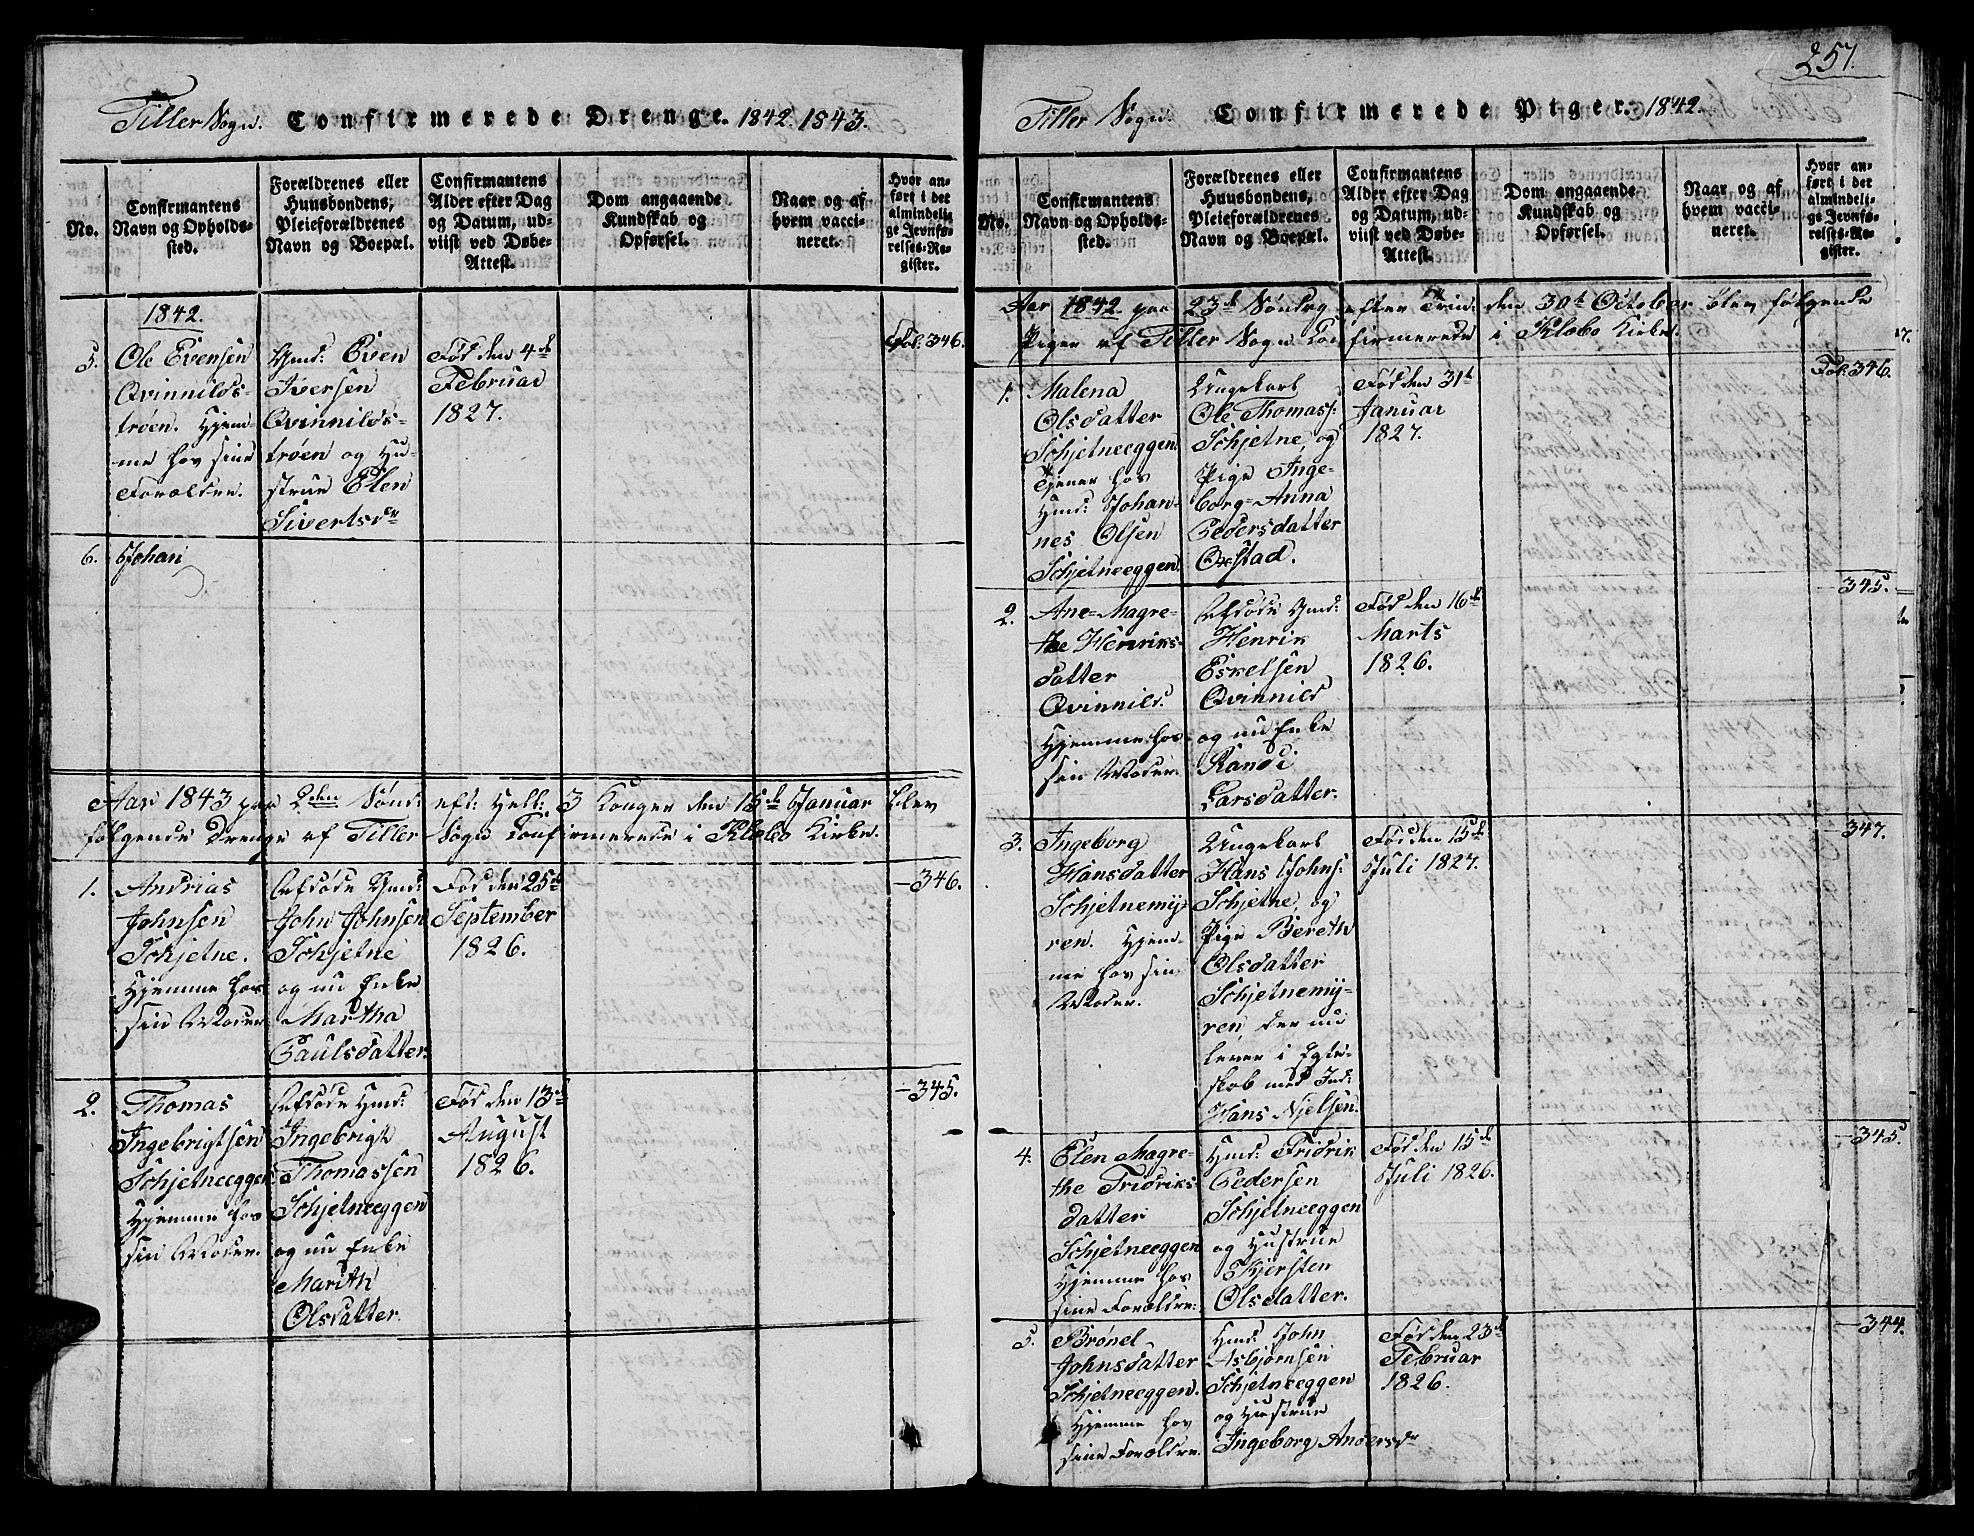 257.
Tiller Sogn. Confirmerede Drenge. 1842. 1843.
No.
Confirmantens
Navn og Opholds-
sted.
Forældrenes eller
Huusbondens,
Pleieforældrenes
Navn og Boepæl.
Confirmantens
Alder efter Dag
og Datum, ud-
viist ved Døbe-
Attest.
Dom angaaende
Kundskab og
Opførsel.
Naar og af
hvem vacci-
neret.
Hvor an-
ført i det
almindeli-
ge Jevnfø-
relses-Re-
gister.
1842.
5. Ole Evensen
Qvinnilds-
trøen. Hjem-
me hos sine
Forældre.
Gmd: Even
Iversen
Qvinnilds-
trøen og Hu-
strue Elen
Sivertsdr
Fød den 4de
Februar
1827.
Fol: 346.
6. Johan
Aar 1843 paa 2den Sønd: eft: Hell: 3 Konger den 15de Januar blev
følgende Drenge af Tiller Sogn Confirmerede i Klæbo Kirke.
1. Andrias
Johnsen
Schjetne.
Hjemme hos
sin Moder
Afdøde Gmd:
John Johnsen
Schjetne
og nu Enke
Martha
Paulsdatter.
Fød den 25de
September
1826.
-346.
2. Thomas
Ingebrigtsen
Schjetneeggen
Hjemme hos
sin Moder.
Afdøde Hmd:
Ingebrigt
Thomassen
Schjetneeggen
og nu Enke
Marith
Olsdatter.
Fød den 13de
August
1826.
-345.
Tiller Sogn. Confirmerede Piger. 1842.
No.
Confirmantens
Navn og Opholds-
sted.
Forældrenes eller
Huusbondens,
Pleieforældrenes
Navn og Boepæl.
Confirmantens
Alder efter Dag
og Datum, ud-
viist ved Døbe-
Attest.
Dom angaaende
Kundskab og
Opførsel.
Naar og af
hvem vacci-
neret.
Hvor an-
ført i det
almindeli-
ge Jevnfø-
relses-Re-
gister.
Aar 1842. paa 23de Søndag efter Trin: den 30te October blev følgende
Piger af Tiller Sogn Confirmerede i Klæbo Kirke.
1. Malena
Olsdatter
Schjetneeggen
Tjener hos
Hmd: Johan-
nes Olsen
Schjetneeggen.
Ungekarl
Ole Thomass:
Schjetne og
Pige Inge-
borg-Anna
Pedersdatter
Okstad.
Fød den 31te
Januar
1827.
Fol: 346.
2. Ane-Magre-
the Henriks-
datter
Qvinnild.
Hjemme hos
sin Moder.
Afdøde Gmd:
Henrik
Eskelsen
Qvinnild
og nu Enke
Randi
Larsdatter.
Fød den 16de
Marts
1826.
-345.
3. Ingeborg
Hansdatter
Schjetnemy-
ren. Hjem-
me hos sin
Moder.
Ungekarl
Hans Johns:
Schjetne, og
Pige Bereth
Olsdatter
Schjetnemy-
ren der nu
lever i Egte-
skab med Ind:
Hans Njelsen.
Fød den 15de
Juli 1827.
-347.
4. Elen Magre-
the Fridriks-
datter
Schjetneeggen
Hjemme hos
sine Forældre:
Hmd: Fridrik
Pedersen
Schjetneeggen
og Hustrue
Kjersten
Olsdatter.
Fød den 15de
Juli 1826.
-345.
5. Brønel
Johnsdatter
Schjetneeggen.
Hjemme hos
sine Forældre.
Hmd: John
Asbjørnsen
Schjetneeggen
og Hustrue
Ingeborg Andersdr
Fød den 23de
Februar
1826.
-344.